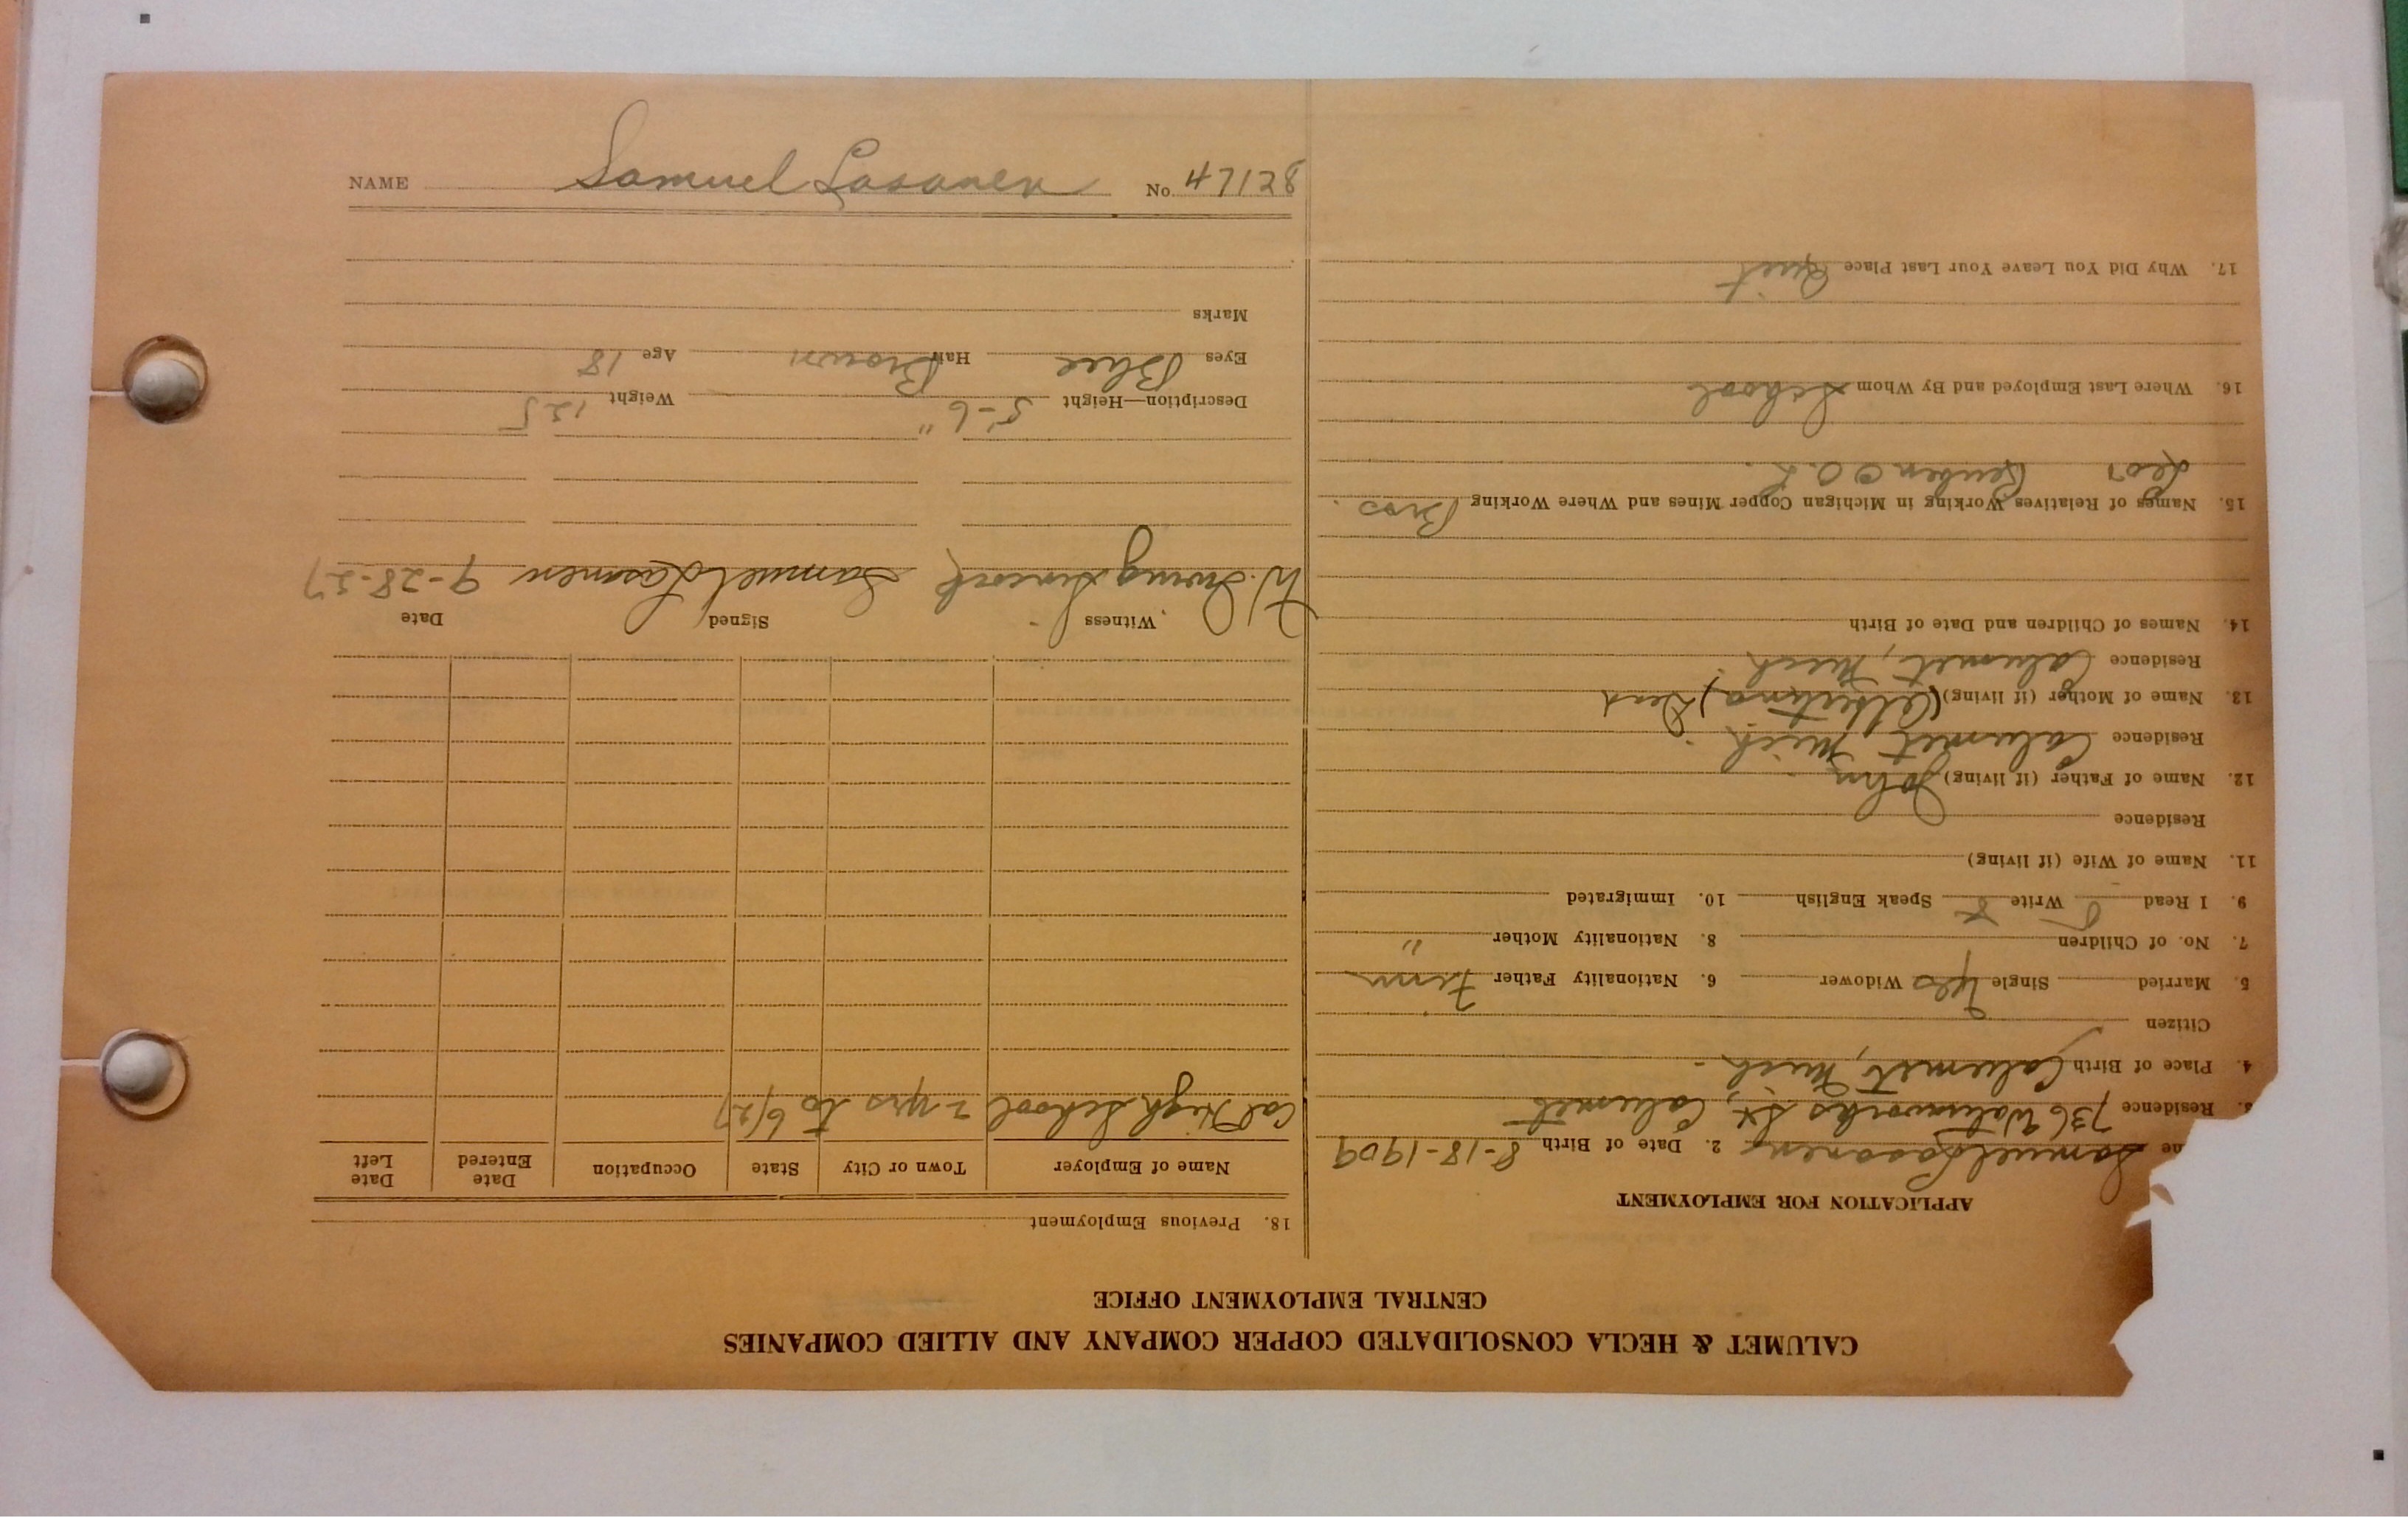 NAME Samuel Lasanen No. 47128
CALUMET & HECLA CONSOLIDATED COPPER COMPANY AND ALLIED COMPANIES
CENTRAL EMPLOYMENT OFFICE
APPLICATION FOR EMPLOYMENT
Samuel Lasanen 2. Date of Birth 8-18-1909
Residence 736 Waterworks St., Calumet
4. Place of Birth Calumet, Mich.
Citizen
5. Married Single Yes Widower 6. Nationality Father Finn
7. No. of Children 8. Nationality Mother "
9. I Read Write Speak English 10. Immigrated
11. Name of Wife (if living)
Residence
12. Name of Father (if living) John
Residence Calumet, Mich.
13. Name of Mother (if living) (Albertina) Dead
Residence Calumet, Mich.
14. Names of Children and Date of Birth
15. Names of Relatives Working in Michigan Copper Mines and Where Working Bros.
Reuben
16. Where Last Employed and By Whom School
17. Why Did You Leave Your Last Place Quit
18. Previous Employment
Name of Employer Town or City State Occupation Date Entered Date Left
Cal High School 2 yrs to 6/27
Witness Signed Date
W. Samuel Lasanen 9-28-27
Description—Height 5'-6" Weight 125
Eyes Blue Hair Brown Age 18
Marks